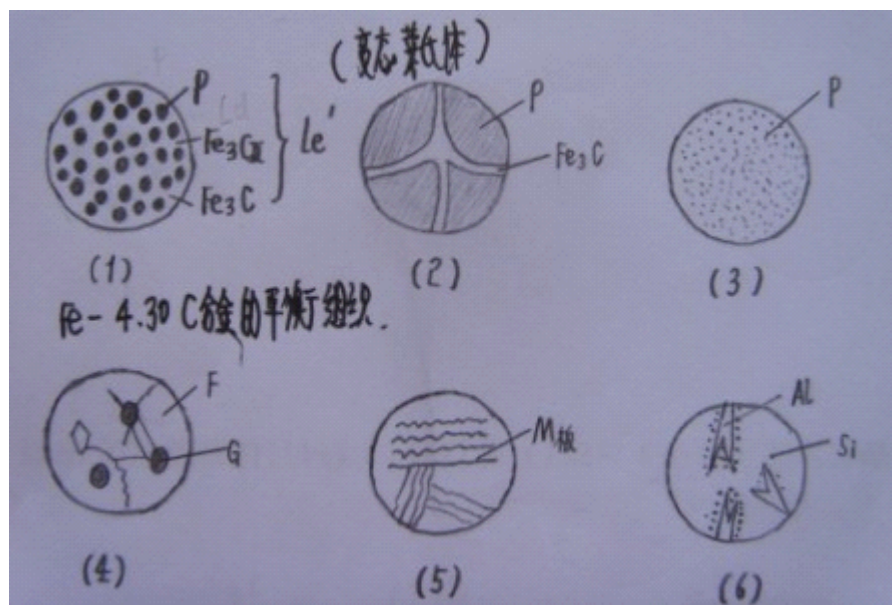 (变态莱氏体)
P
Fe₃CⅡ
Fe₃C
Le'
P
Fe₃C
P
(1)
(2)
(3)
Fe-4.30 C合金的平衡组织.
F
G
M板
Al
Si
(4)
(5)
(6)